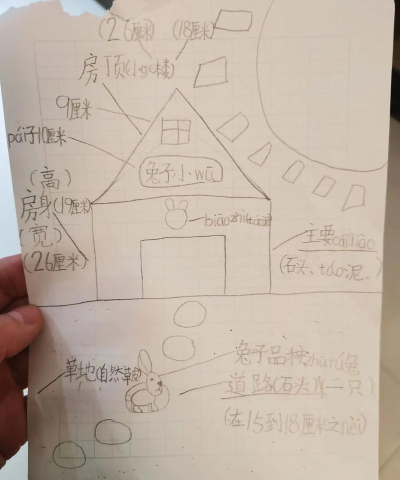 (26厘米) (18厘米)
房顶(小阁楼)
9厘米
pái子10厘米
兔子小wū
(高)
房身(19厘米)
(宽)
(26厘米)
biāozhì
主要cáiliào
(石头、
草地(自然草
兔子品种zhū兔
道路(石头)(一只)
(在15到18厘米之nèi)